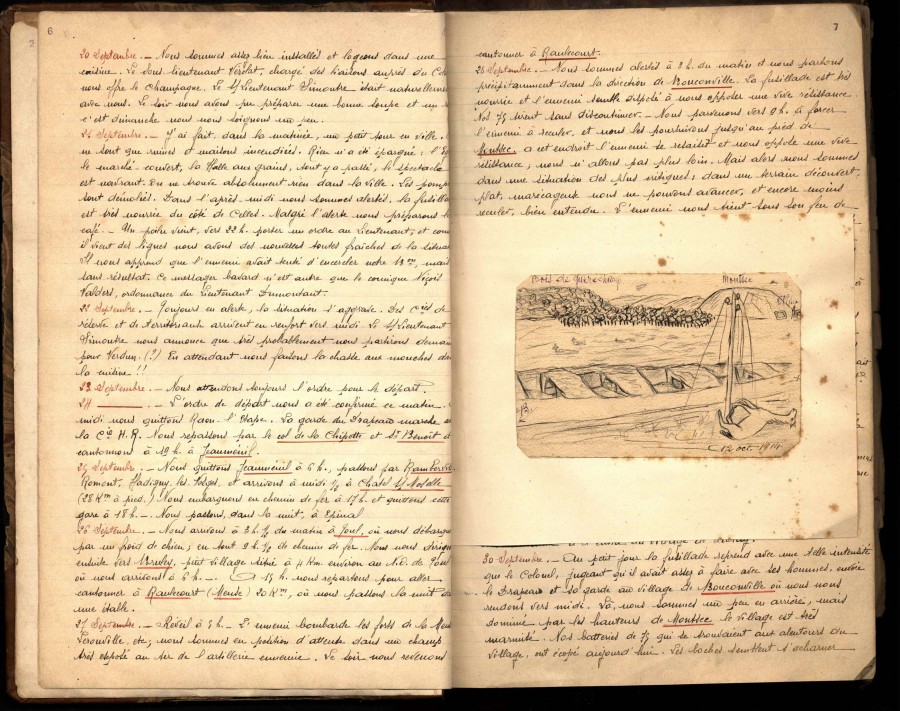 6
20 Septembre. - Nous sommes assez bien installés et logeons dans une
cuisine. Le Sous-lieutenant Verlat, chargé des liaisons auprès du Col
nous offre le Champagne. Le S/Lieutenant Simoutre était naturellement
avec nous. Le soir nous avons pu préparer une bonne soupe et un
c'est dimanche nous nous soignons un peu.
21 Septembre. - J'ai fait, dans la matinée, un petit tour en ville.
ne sont que ruines et maisons incendiées. Rien n'a été épargné ; l'
le marché-couvert, la Halle aux grains, tout y a passé, le spectacle
est navrant. On ne trouve absolument rien dans la ville. Les pomp
sont démolies. Dans l'après-midi nous sommes alertés. La fusilla
est très nourrie du côté de Celles. Malgré l'alerte nous préparons l
café. - Un poilu vient, vers 22 h. porter un ordre au Lieutenant, et com
il vient des lignes nous avons des nouvelles toutes fraîches de la situa
Il nous apprend que l'ennemi avait tenté d'encercler notre Bon, mais
sans résultat. Ce messager bavard n'est autre que le comique
ordonnance du Lieutenant
22 Septembre. - Toujours en alerte, la situation s'aggrave. Des Cies de
réserve et de territoriaux arrivent en renfort vers midi. Le S/Lieutenant
Simoutre nous annonce que très probablement nous partirons demain
pour Verdun. (?) En attendant nous faisons la chasse aux mouches da
la cuisine !!
23 Septembre. - Nous attendons toujours l'ordre pour le départ.
24 ______ . - L'ordre de départ nous a été confirmé ce matin.
midi nous quittons Raon l'Etape. La garde du Drapeau marche a
la Cie H.R. Nous repassons par le col de la Chipotte et St Benoit et
cantonnons à 19 h. à Jeanménil.
25 Septembre. - Nous quittons Jeanménil à 6 h., passons par Rambervil
Romont, Hadigny les Vosges, et arrivons à midi ½ à Chatel s/ Moselle
(28 Km à pied.) Nous embarquons en chemin de fer à 17 h. et quittons cette
gare à 18 h. - Nous passons, dans la nuit, à Epinal
26 Septembre. - Nous arrivons à 3 h. ½ du matin à Toul, où nous débarqu
par un froid de chien ; en tout 9 h. ½ de chemin de fer. Nous nous dirige
ensuite vers petit village situé à 4 Km environ au N.O. de Toul
où nous arrivons à 6 h. - A 15 h. nous repartons pour aller
cantonner à Raulecourt (Meuse) 20 Km, où nous passons la nuit da
une étable.
27 Septembre. - Réveil à 5 h. - L'ennemi bombarde les forts de la Meu
Liouville, etc, nous sommes en position d'attente dans un champ
très exposé au tir de l'artillerie ennemie. Le soir nous revenons
7
cantonner à Raulecourt.
28 Septembre. - Nous sommes alertés à 2 h. du matin et nous partons
précipitamment dans la direction de Bouconville. La fusillade est très
nourrie et l'ennemi semble disposé à nous opposer une vive résistance.
Nos 75 tirent sans discontinuer. - Nous parvenons vers 9 h. à forcer
l'ennemi à reculer, et nous les poursuivons jusqu'au pied de
Montsec. a cet endroit l'ennemi se ressaisit et nous oppose une vive
résistance, nous n'allons pas plus loin. Mais alors nous sommes
dans une situation des plus critiques ; dans un terrain découvert,
plat, marécageux nous ne pouvons avancer, et encore moins
reculer, bien entendu. L'ennemi nous tient sous son feu de
Montsec
12 oct. 1914
30 Septembre. - Au petit jour la fusillade reprend avec une telle intensité
que le Colonel, jugeant qu'il avait assez à faire avec ses hommes, envoie
le Drapeau et sa garde au village de Bouconville où nous nous
rendons vers midi. Là, nous sommes un peu en arrière, mais
dominé par les hauteurs de Montsec le village est très
marmité. Nos batteries de 75 qui se trouvaient aux alentours du
village, ont écopé aujourd'hui. Les boches semblent s'acharner